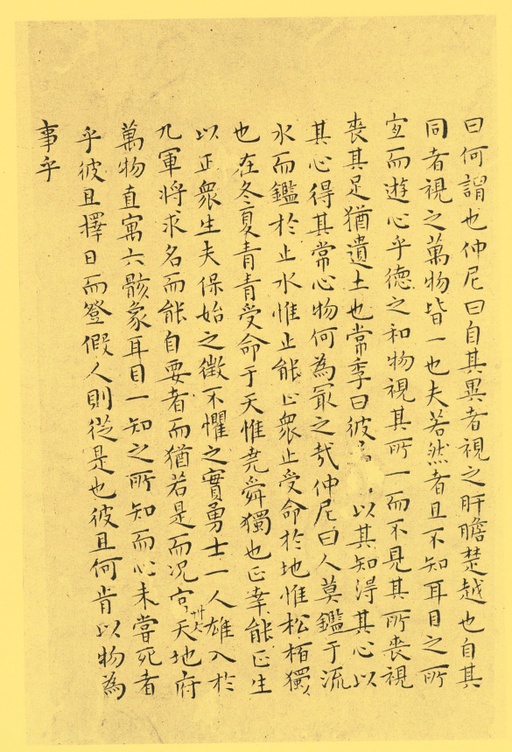 曰何謂也仲尼曰自其異者視之肝膽楚越也自其
同者視之萬物皆一也夫若然者且不知耳目之所
宜而遊心乎德之和物視其所一而不見其所喪視
喪其足猶遺土也常季曰彼以其知得其心以
其心得其常心物何為冣之㢤仲尼曰人莫鑑于流
水而鑑於止水惟止能止衆止受命於地惟松栢獨
也在冬夏青青受命于天惟堯舜獨也正幸能正生
以正衆生夫保始之徵不懼之實勇士一人雄入於
九軍將求名而能自要者而猶若是而况官天地府
萬物直寓六骸象耳目一知之所知而心未嘗死者
乎彼且擇日而登假人則從是也彼且何肯以物為
事乎